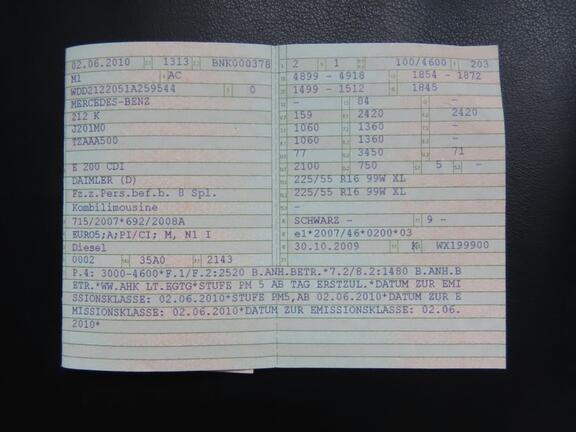 02.06.2010 1313 BNK000378
M1 AC
WDD2122051A259544 0
MERCEDES-BENZ
212 K
J201M0
TZAAA500
E 200 CDI
DAIMLER (D)
Fz.z.Pers.bef.b. 8 Spl.
Kombilimousine
715/2007*692/2008A
EURO5;A;PI/CI; M, N1 I
Diesel
0002 35A0 2143
2 1 100/4600 203
4899 - 4918 1854 - 1872
1499 - 1512 1845
- 84 -
159 2420 2420
1060 1360 -
1060 1360 -
77 3450 71
2100 750 5 -
225/55 R16 99W XL
225/55 R16 99W XL
-
SCHWARZ - 9 -
e1*2007/46*0200*03
30.10.2009 K WX199900
P.4: 3000-4600*F.1/F.2:2520 B.ANH.BETR.*7.2/8.2:1480 B.ANH.B
ETR.*WW.AHK LT.EGTG*STUFE PM 5 AB TAG ERSTZUL.*DATUM ZUR EMI
SSIONSKLASSE: 02.06.2010*STUFE PM5,AB 02.06.2010*DATUM ZUR E
MISSIONSKLASSE: 02.06.2010*DATUM ZUR EMISSIONSKLASSE: 02.06.
2010*